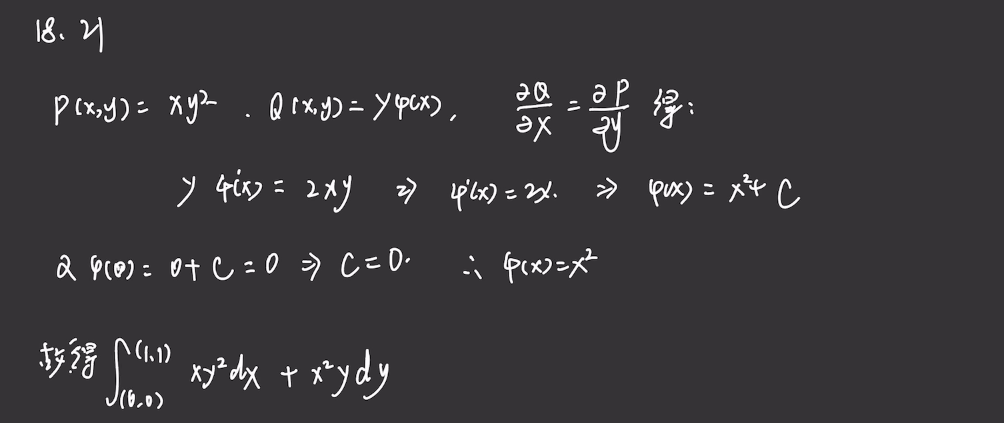 18. 2)
P(x,y) = xy². Q(x,y) = yφ(x), ∂Q/∂x = ∂P/∂y 得:
yφ'(x) = 2xy ⇒ φ'(x) = 2x. ⇒ φ(x) = x² + C
又 φ(0) = 0 + C = 0 ⇒ C = 0. ∴ φ(x) = x²
故得 ∫_(0,0)^(1,1) xy²dx + x²ydy